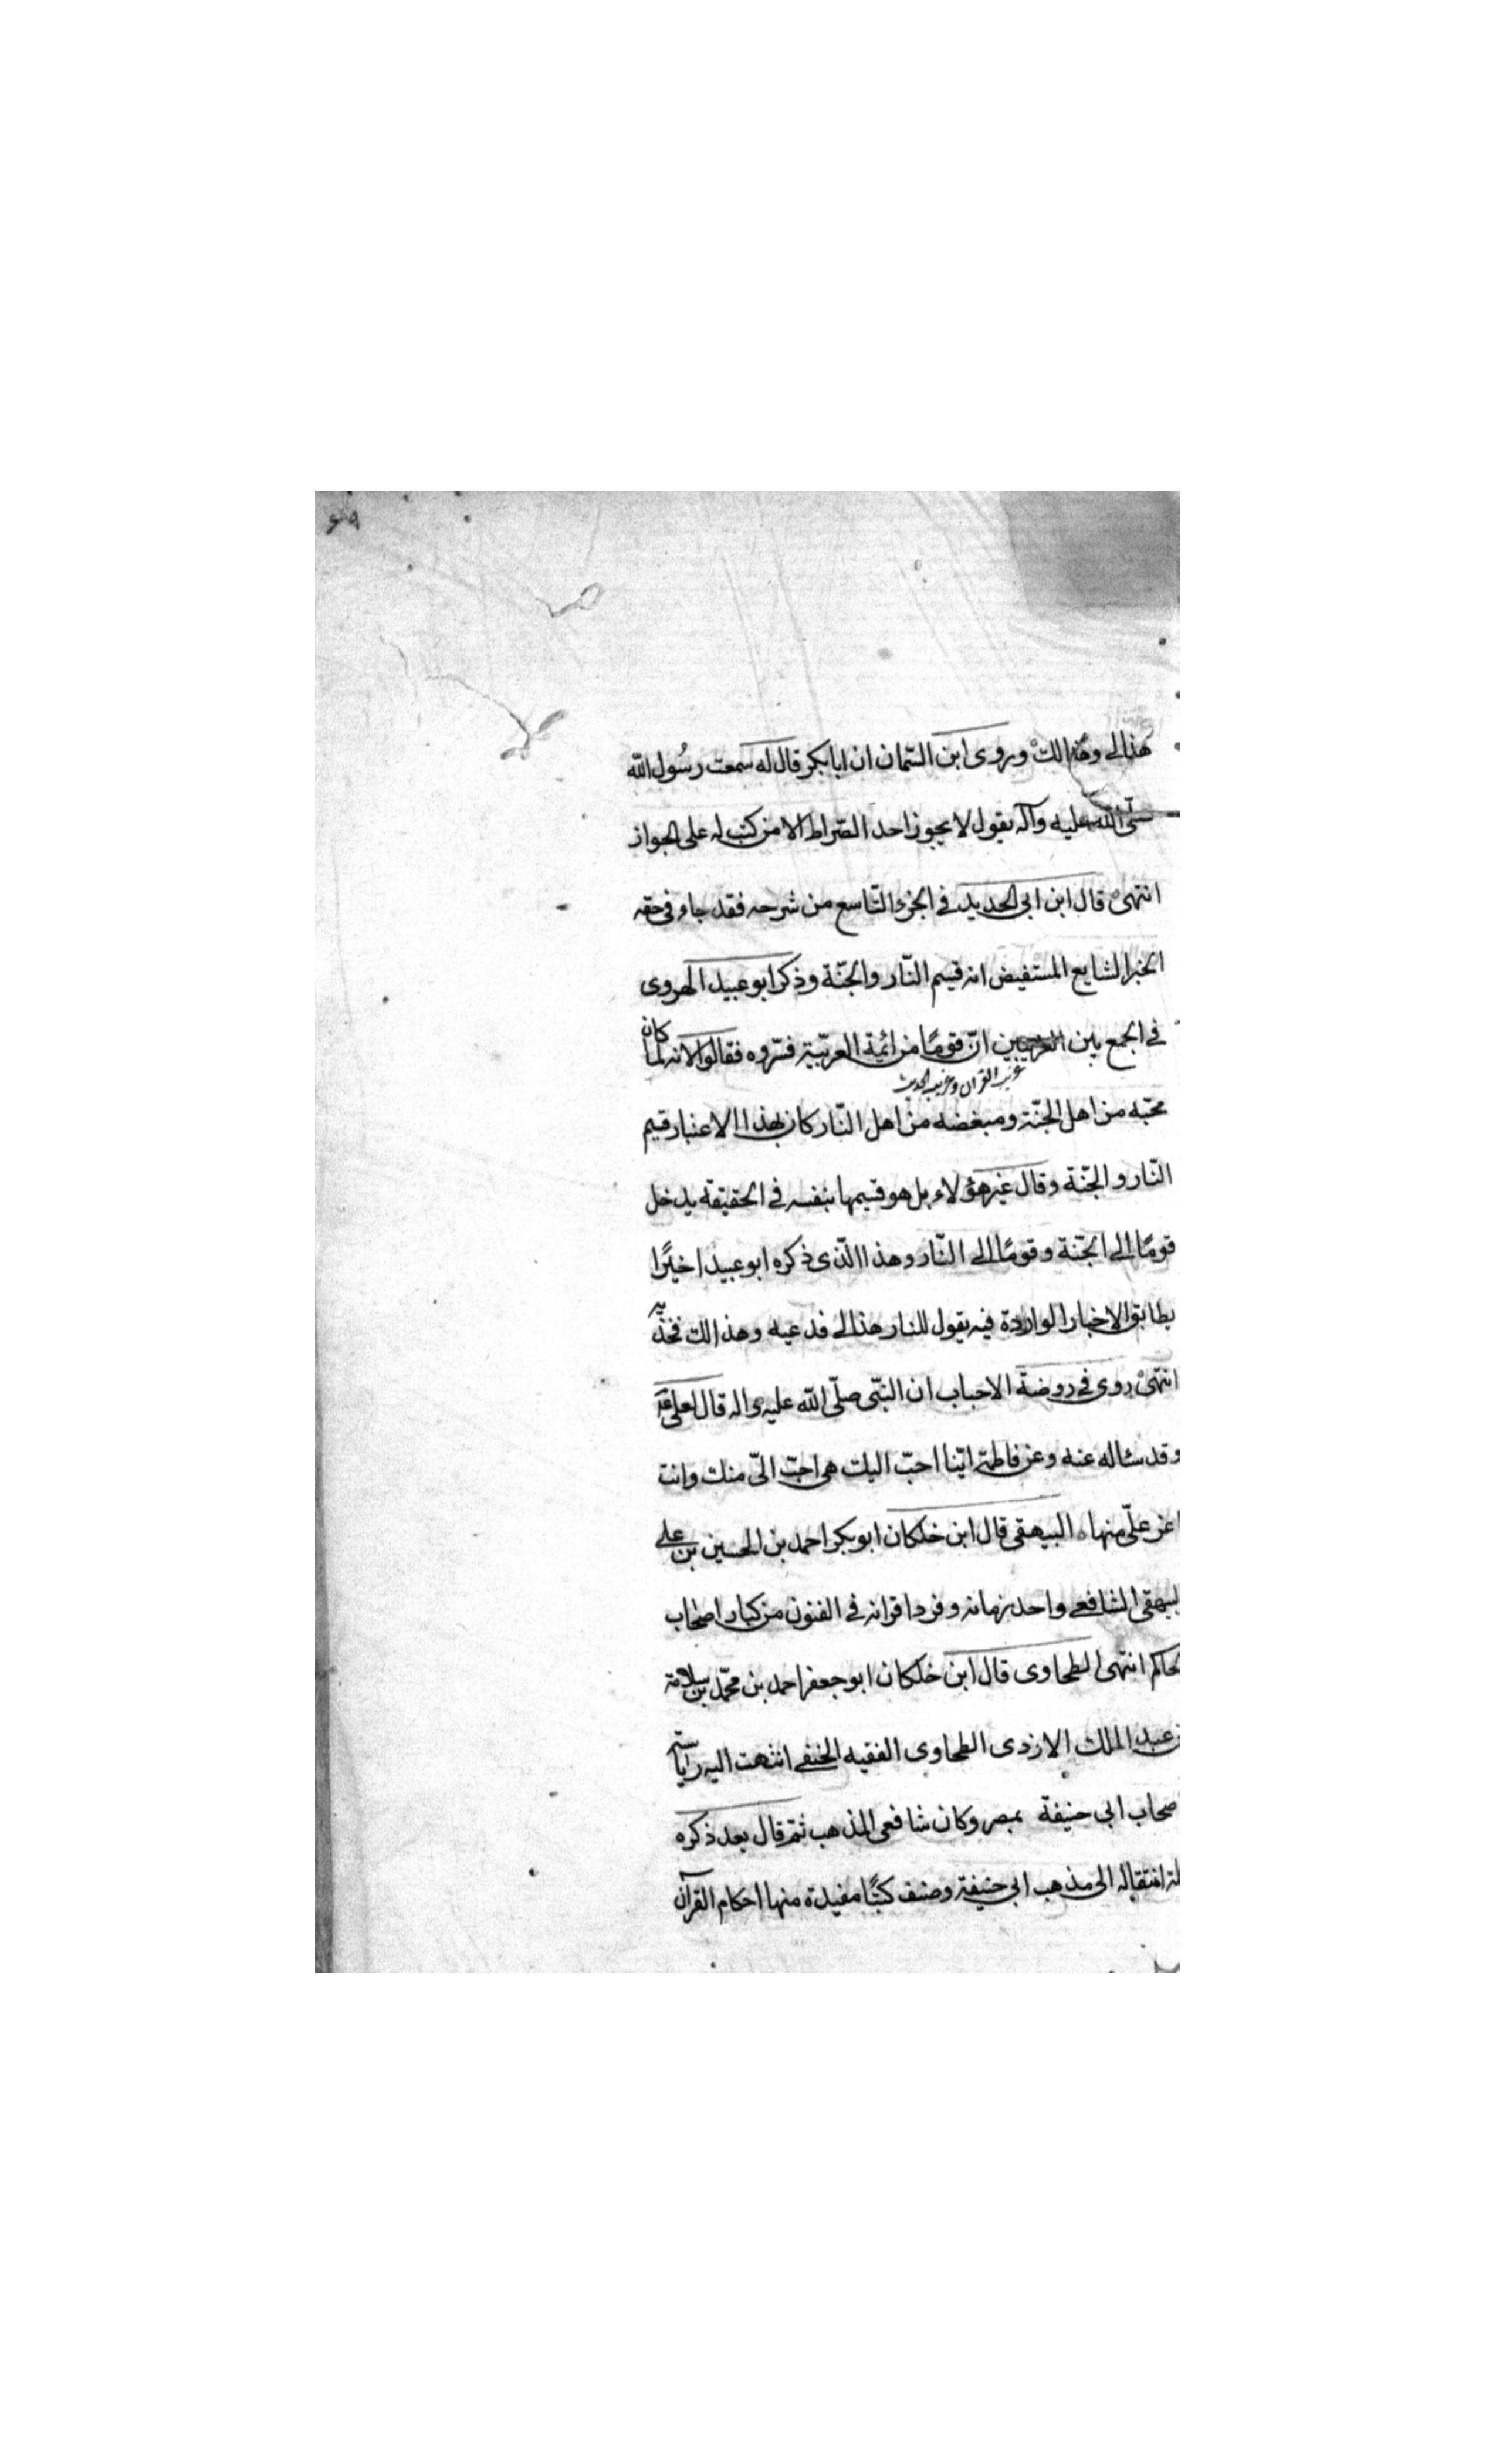 ۶۹
هذا لي وهذا لك وروى ابن السّمان ان ابا بكر قال له سمعت رسُول اللّه
صلّى اللّه عليه وآله يقول لا يجوز احد الصّراط الا من كتب له على الجواز
انتهىْ قال ابن ابي الحديد في الجزء التّاسع من شرحه فقد جاء في حقه
الخبر الشايع المستفيض انه قيم النّار والجنّة وذكر ابو عبيد الهروى
في الجمع بين الغريبين انّ قومًا من ائمة العربيّة فسّروه فقالوا لانه لما كان
غريب القران وغريب الحديث
محبّه من اهل الجنّة ومبغضه من اهل النّار كان بهذا الاعتبار قيم
النّار والجنّة وقال غير هؤلاء بل هو قسيمها بنفسه في الحقيقة يدخل
قومًا الى الجنّة وقومًا الى النّار وهذا الّذى ذكره ابو عبيد اخيرًا
يطابق الاخبار الواردة فيه يقول للنار هذا لي فدعيه وهذا لك فخذيه
انتهىْ روى في روضة الاحباب ان النبّى صلّى اللّه عليه واله قال لعلى
وقد سئاله عنه وعن فاطمة ايّنا احبّ اليك هى احبّ الىّ منك وانت
اعز علىّ منها ه البيهقى قال ابن خلكان ابو بكر احمد بن الحسين بن على
البيهقى الشافعي واحد زمانه وفرد اقرانه في الفنون من كبار اصحاب
الحاكم انتهى الطحاوى قال ابن خلكان ابو جعفر احمد بن محمّد بن سلامة
بن عبد الملك الازدى الطحاوى الفقيه الحنفي انتهت اليه رياسة
اصحاب ابى حنيفة بمصر وكان شافعى المذهب ثمّ قال بعد ذكره
علة انتقاله الى مذهب ابي حنيفة وصنف كتبًا مفيدة منها احكام القرآن